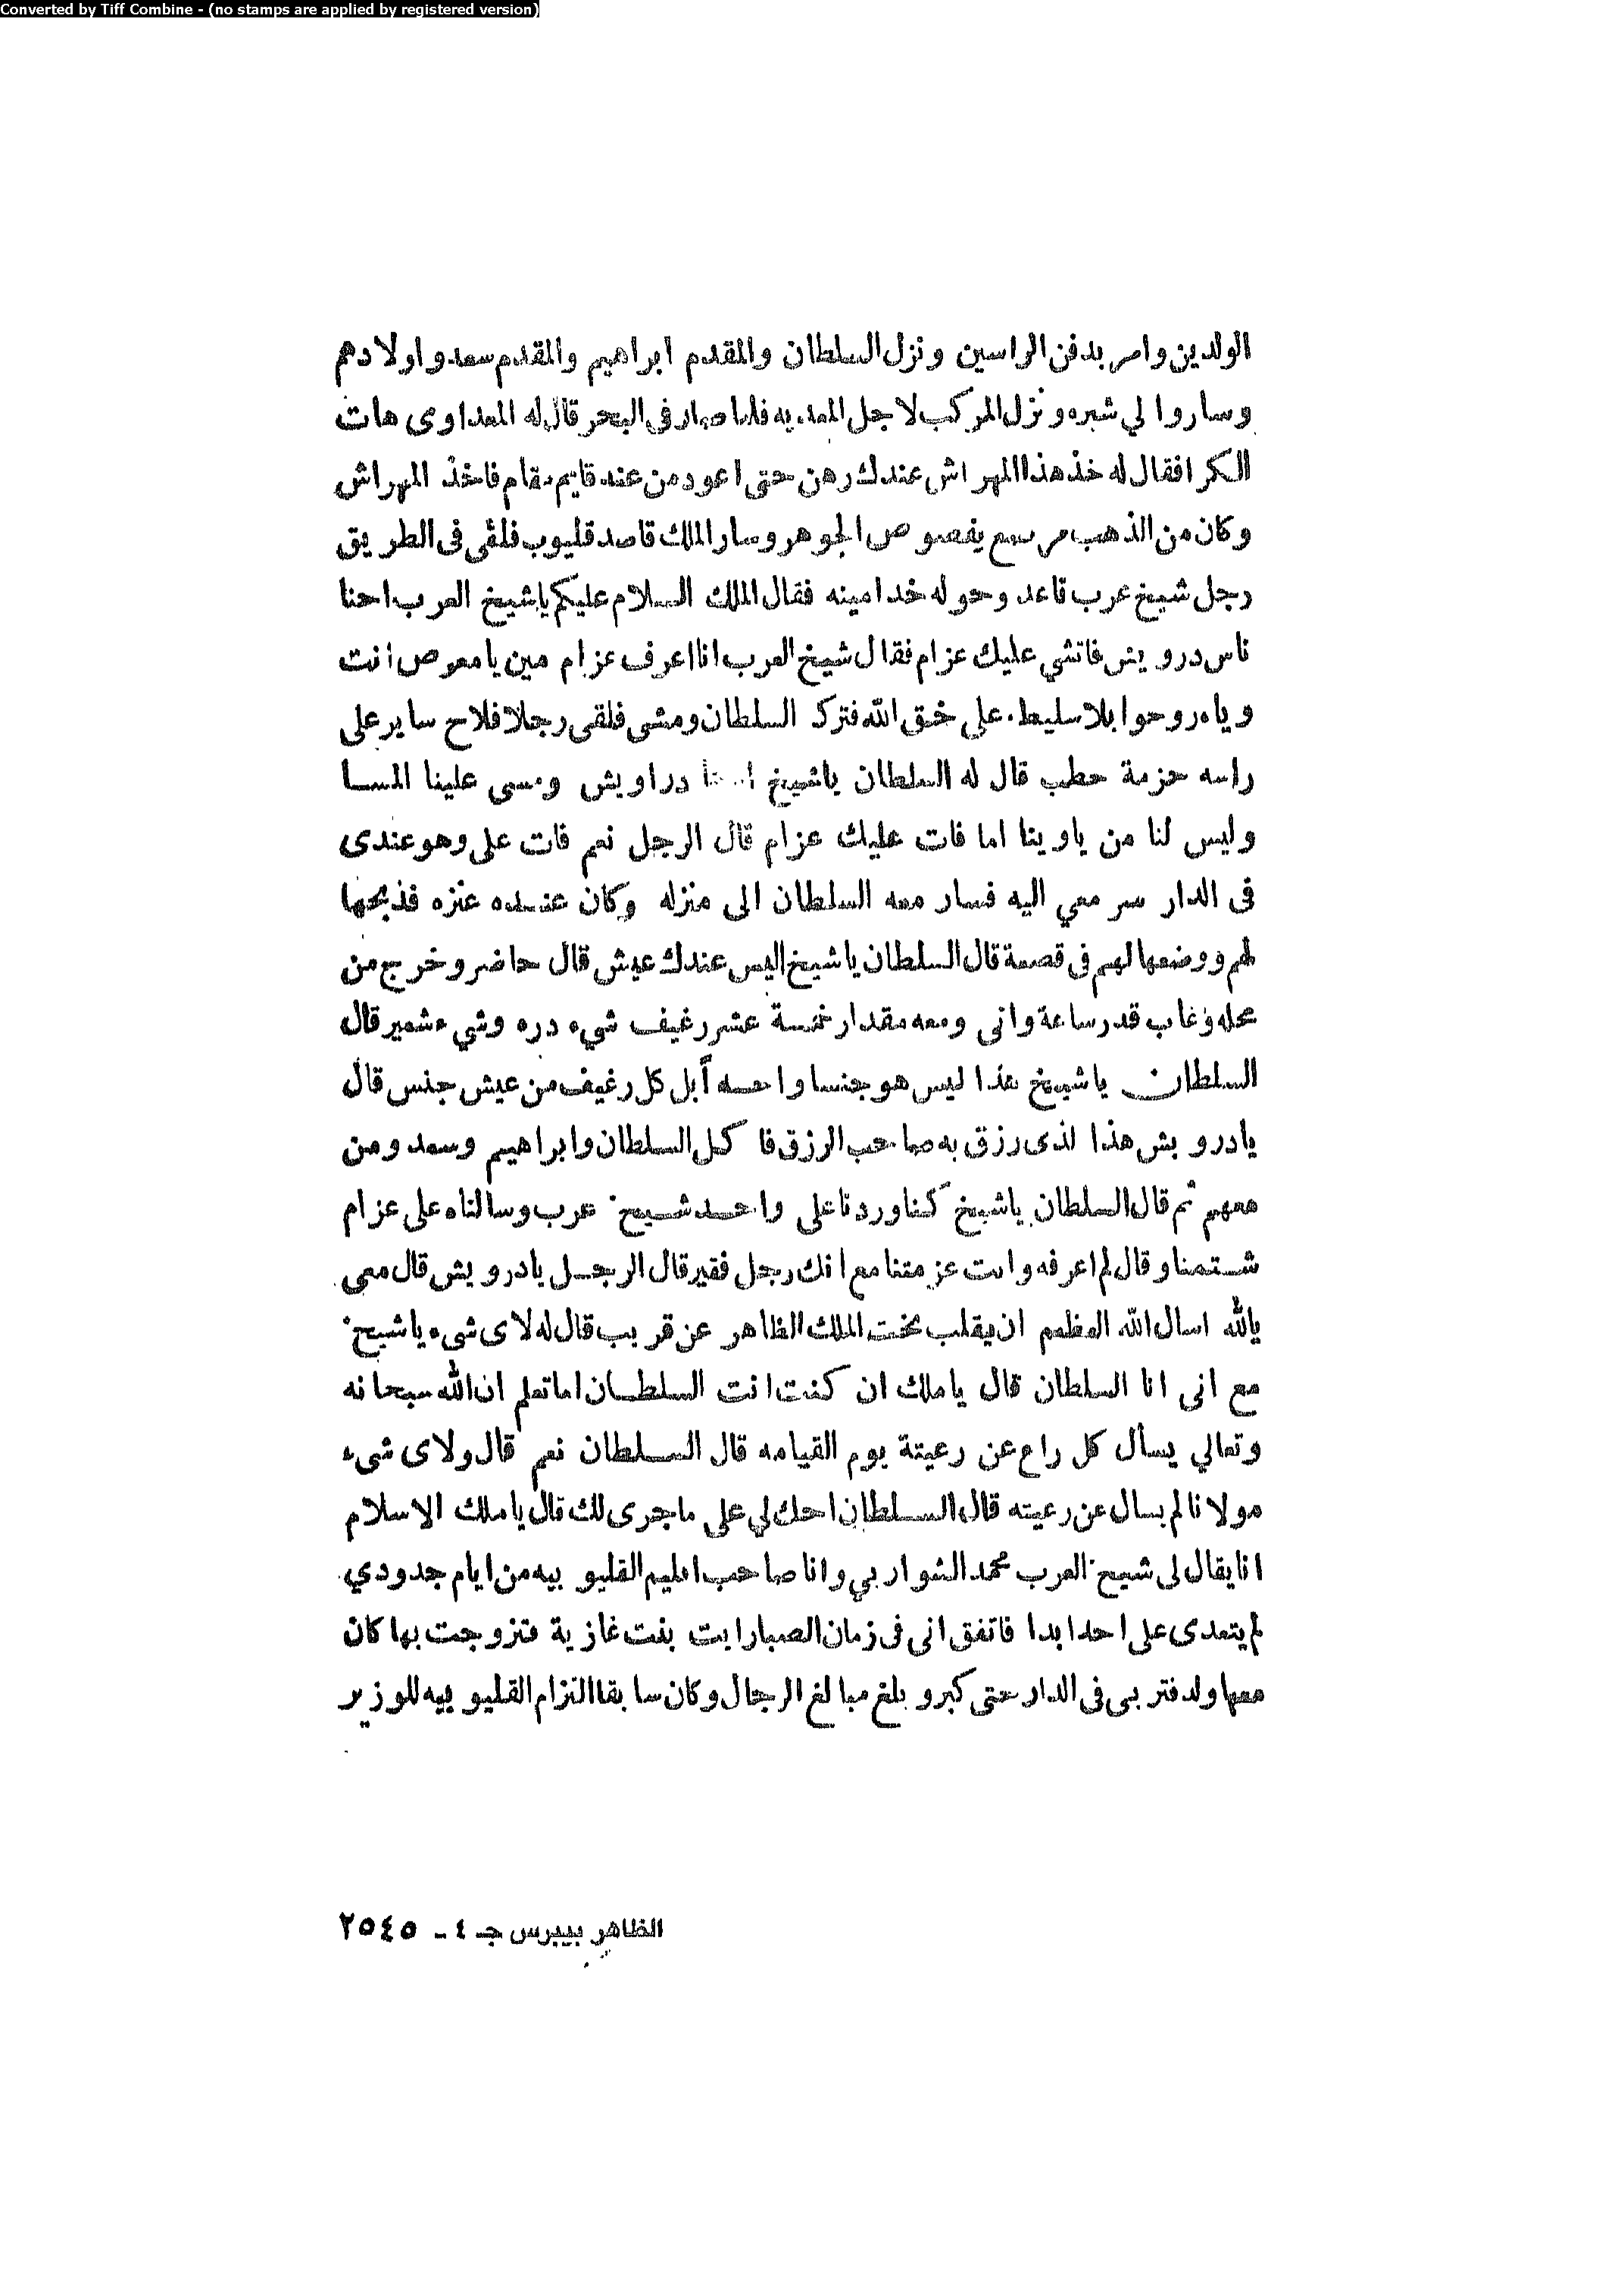 Converted by Tiff Combine - (no stamps are applied by registered version)
الولدين وامر بدفن الراسين ونزل السلطان والمقدم ابراهيم والمقدم سعد واولادهم
وساروا لي شبره ونزل المركب لاجل المعديه فلما صار في البحر قال له المعداوى هات
الكرا فقال له خذ هذا المهراش عندك رهن حتى اعود من عند قايم مقام فاخذ المهراش
وكان من الذهب مرصع بفصوص الجوهر وسار الملك قاصد قليوب فلقى فى الطريق
رجل شيخ عرب قاعد وحوله خدامينه فقال الملك السلام عليكم ياشيخ العرب احنا
ناس درويش فاتشي عليك عزام فقال شيخ العرب انا اعرف عزام مين يامعرص انت
وياه روحوا بلا سليط على خق الله فتركه السلطان ومشى فلقى رجلا فلاح ساير على
راسه حزمة حطب قال له السلطان ياشيخ دراويش ومسى علينا المسا
وليس لنا من ياوينا اما فات عليك عزام قال الرجل نعم فات على وهو عندى
فى الدار سر معي اليه فسار معه السلطان الى منزله وكان عنده عنزه فذبحها
لهم ووضعها لهم فى قصعة قال السلطان ياشيخ اليس عندك عيش قال حاضر وخرج من
محله وغاب قدر ساعة واتى ومعه مقدار خمسة عشر رغيف شيء دره وشيء شعير قال
السلطان ياشيخ هذا ليس هو جنسا واحداً بل كل رغيف من عيش جنس قال
يادرويش هذا لذى رزق به صاحب الرزق فاكل السلطان وابراهيم وسعد ومن
معهم ثم قال السلطان ياشيخ كنا وردنا على واحد شيخ عرب وسالناه على عزام
شتمنا وقال لم اعرفه وانت عزمتنا مع انك رجل فقير قال الرجل يادرويش قال معى
يالله اسال الله العظيم ان يقلب تخت الملك الظاهر عن قريب قال له لاى شيء ياشيخ
مع انى انا السلطان قال ياملك ان كنت انت السلطان اما تعلم ان الله سبحانه
وتعالي يسأل كل راع عن رعيتة يوم القيامه قال السلطان نعم قال ولاى شىء
مولانا لم بسال عن رعيته قال السلطان احك لي على ماجرى لك قال ياملك الاسلام
انا يقال لى شيخ العرب محمد الشواربي وانا صاحب اقليم القليوبيه من ايام جدودي
لم يتعدى على احد ابدا فاتفق انى فى زمان الصبا رايت بنت غازية فتزوجت بها كان
معها ولد فتربى فى الدار حتى كبر وبلغ مبالغ الرجال وكان سابقا التزام القليوبيه للوزير
الظاهر بيبرس جـ ٤ - ٢٥٤٥